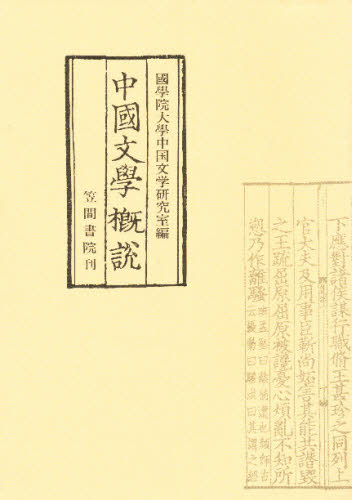 國學院大學中国文学研究室編
中國文學槪説
笠間書院刊
下應對諸侯謀行職脩王甚珍之同列上
官大夫及用事臣靳尚妬害其能共譖毀
之王疏屈原屈原被讒憂心煩亂不知所
愬乃作離騷